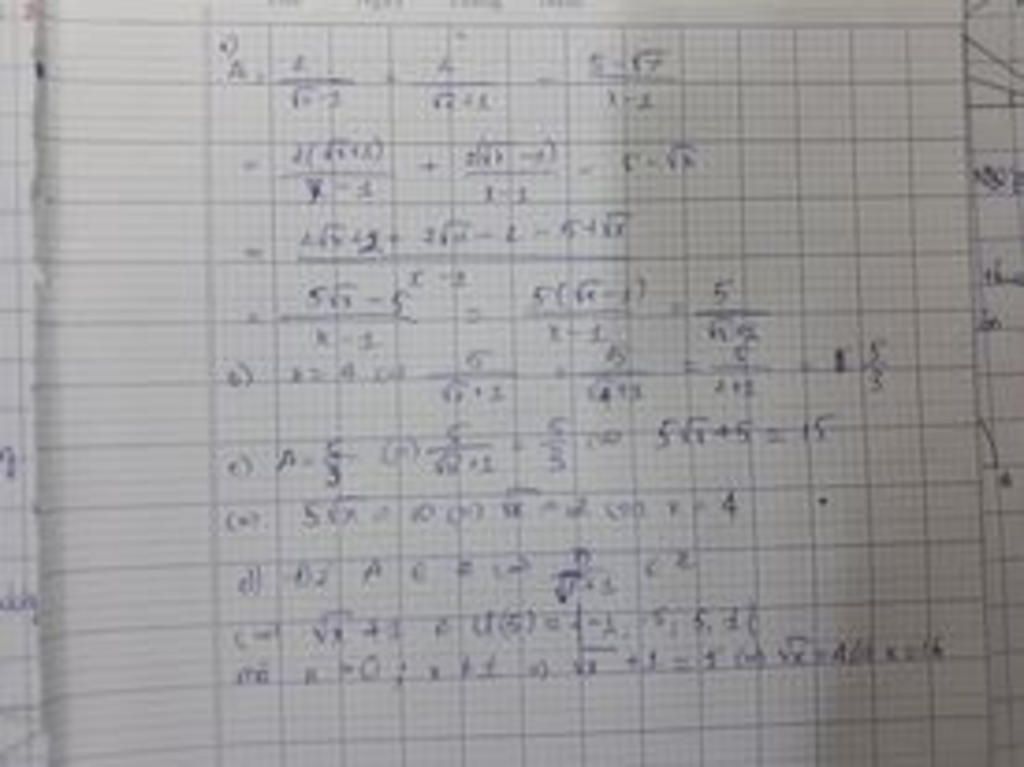 a)
A = \frac{2}{\sqrt{x}-1} + \frac{2}{\sqrt{x}+1} - \frac{5-\sqrt{x}}{x-1}
= \frac{2(\sqrt{x}+1)}{x-1} + \frac{2(\sqrt{x}-1)}{x-1} - 5-\sqrt{x}
= \frac{2\sqrt{x}+2+2\sqrt{x}-2-5+\sqrt{x}}{x-1}
= \frac{5\sqrt{x}-5}{x-1} = \frac{5(\sqrt{x}-1)}{x-1} = \frac{5}{\sqrt{x}+1}
b) x = 4 \frac{5}{\sqrt{x}+1} = \frac{5}{\sqrt{4}+1} = \frac{5}{2+1} = \frac{5}{3}
c) A = \frac{5}{3} (=) \frac{5}{\sqrt{x}+1} = \frac{5}{3} (=) 5\sqrt{x}+5 = 15
(=) 5\sqrt{x} = 10 (=) \sqrt{x} = 2 (=) x = 4
d) A ∈ Z \frac{5}{\sqrt{x}+1} ∈ Z
(=) \sqrt{x}+1 ∈ Ư(5) = {-1, -5; 5; 1}
mà \sqrt{x}+1 = 5 (=) \sqrt{x} = 4 x = 16